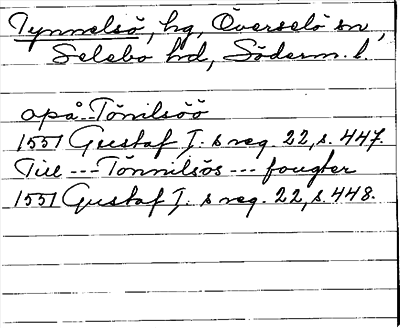 Tynnelsö, hg, Överselö sn,
Selebo hd, Söderm. l.
apå Tönilsöö
1551 Gustaf I:s reg. 22, s. 447.
Till --- Tönnilsös --- fougter
1551 Gustaf I:s reg. 22, s. 448.